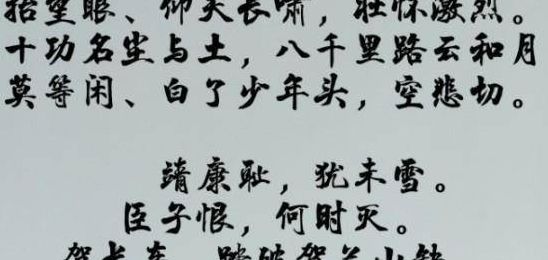 抬望眼、仰天长啸，壮怀激烈。
十功名尘与土，八千里路云和月
莫等闲、白了少年头，空悲切。
靖康耻，犹未雪。
臣子恨，何时灭。
驾长车，踏破贺兰山缺